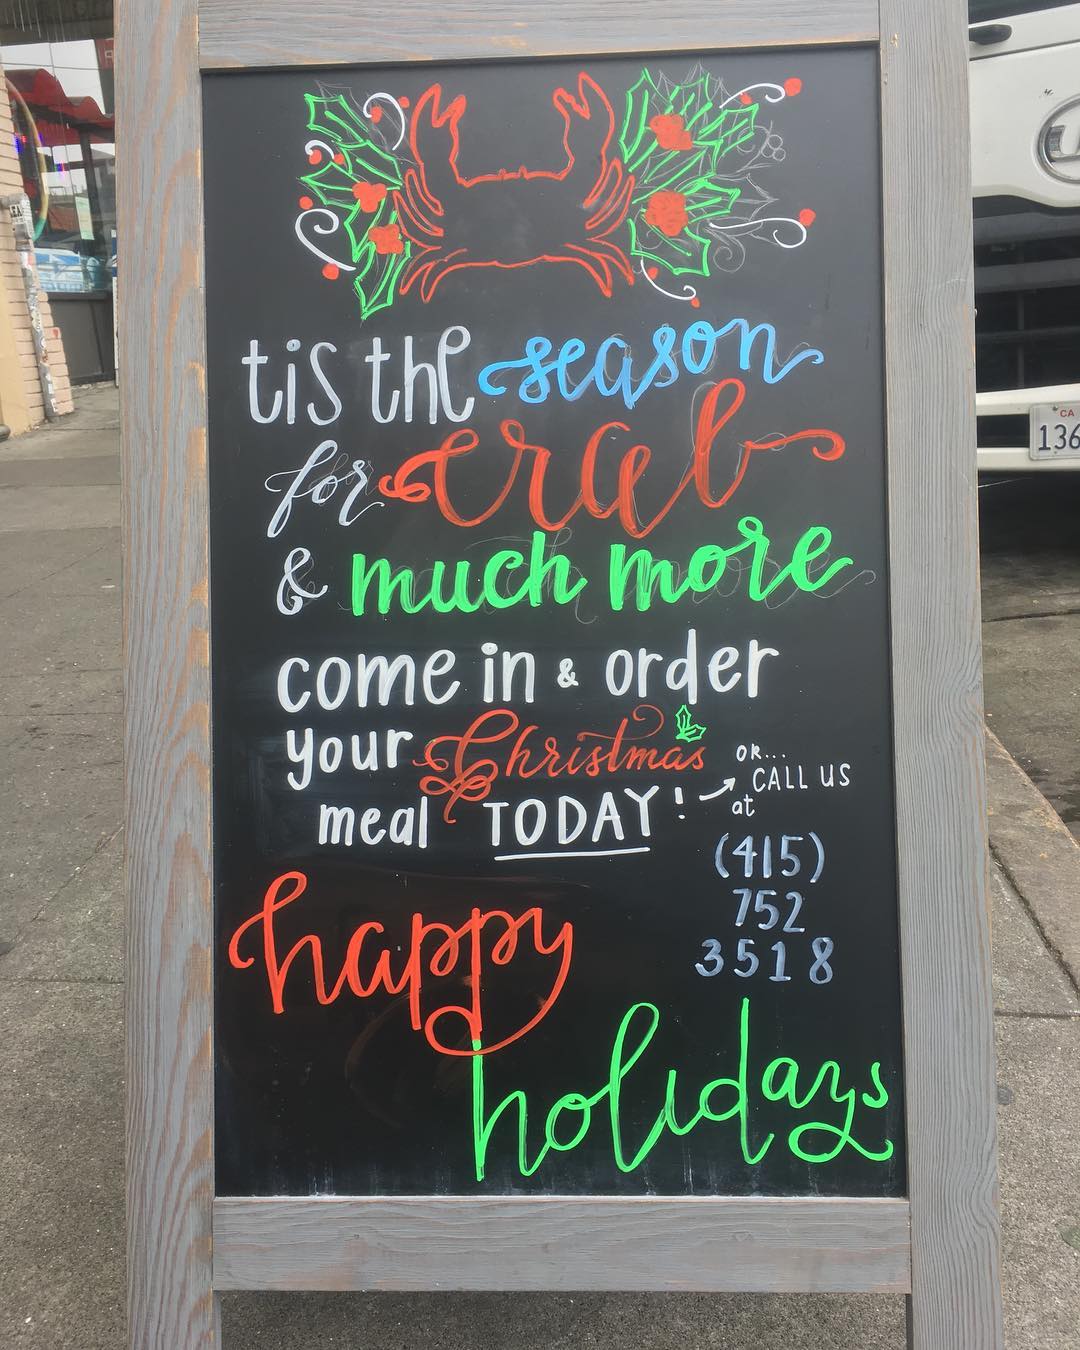 tis the season
for crab
& much more
come in & order
your Christmas
meal TODAY!
OR...
CALL US
at
(415)
752
3518
happy
holidays
CA
136